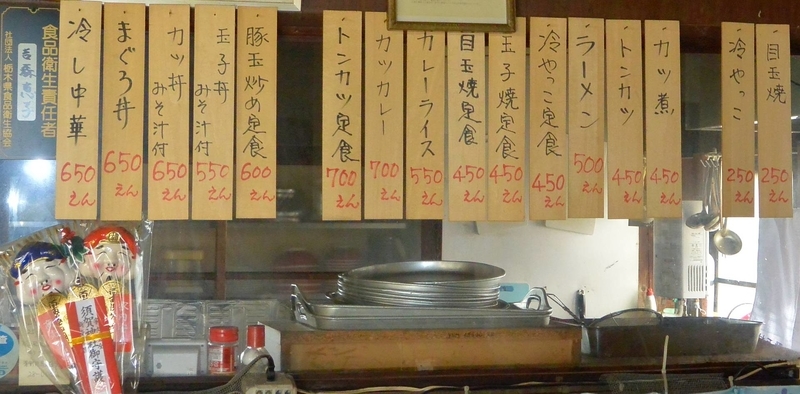 食品衛生責任者
社団法人 栃木県食品衛生協会
冷し中華
650
えん
まぐろ丼
650
えん
カツ丼
みそ汁付
650
えん
玉子丼
みそ汁付
550
えん
豚玉炒め定食
600
えん
トンカツ定食
700
えん
カツカレー
700
えん
カレーライス
550
えん
目玉焼定食
450
えん
玉子焼定食
450
えん
冷やっこ定食
450
えん
ラーメン
500
えん
トンカツ
450
えん
カツ煮
450
えん
冷やっこ
250
えん
目玉焼
250
えん